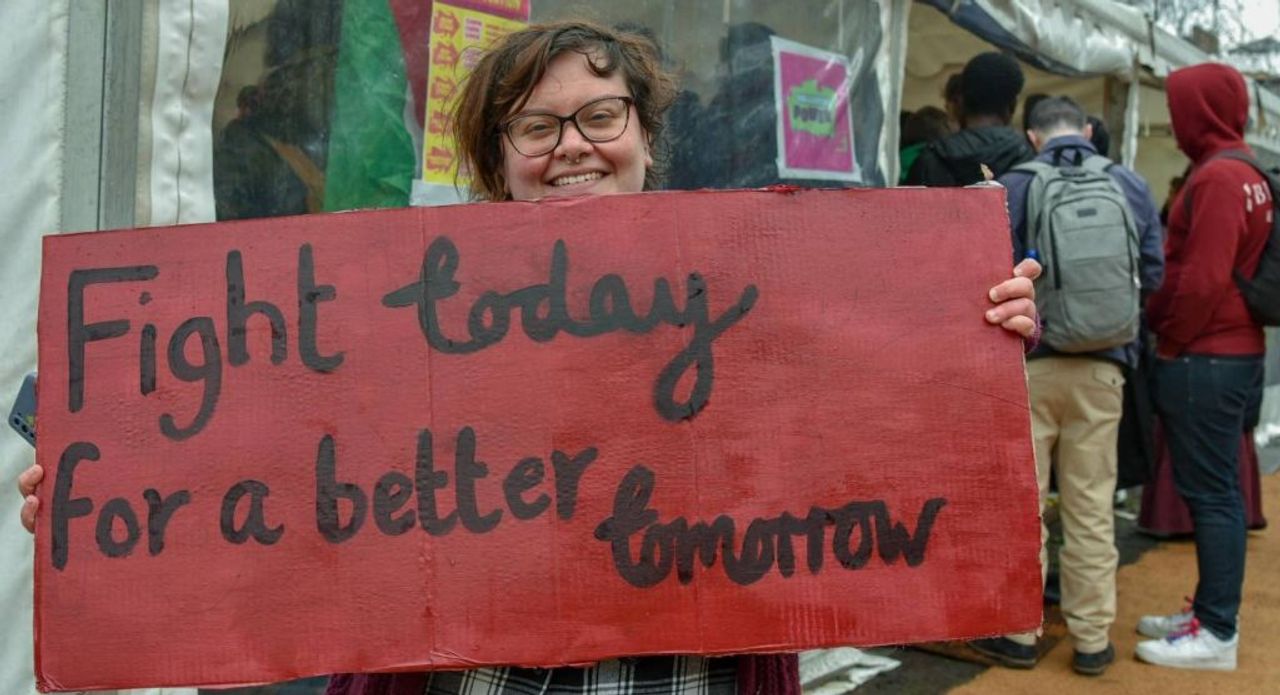 Fight today
for a better tomorrow
POWER